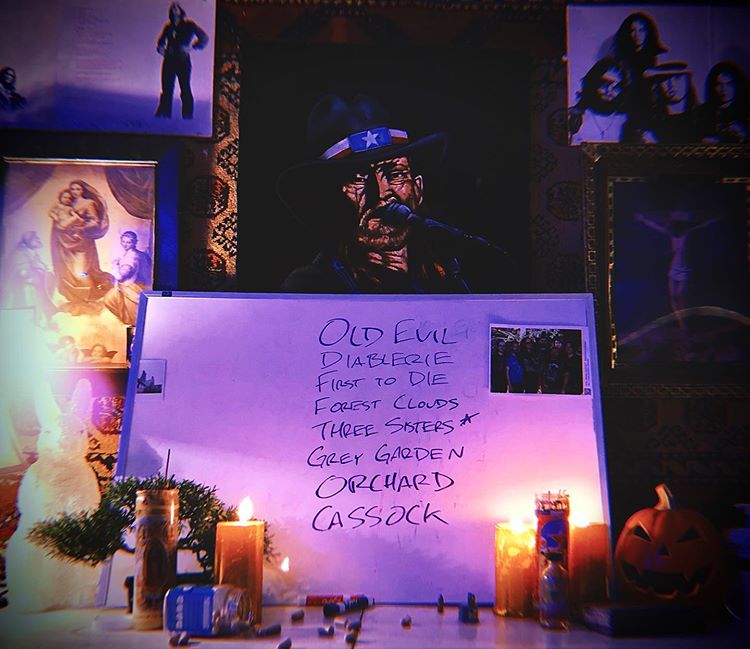 OLD EVIL
DIABLERIE
FIRST TO DIE
FOREST CLOUDS
THREE SISTERS*
GREY GARDEN
ORCHARD
CASSOCK